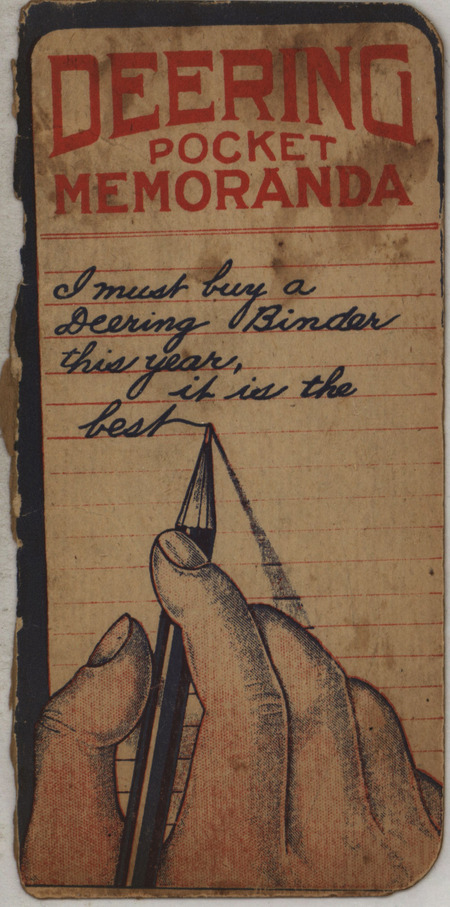 DEERING
POCKET
MEMORANDA
I must buy a
Deering Binder
this year,
it is the
best